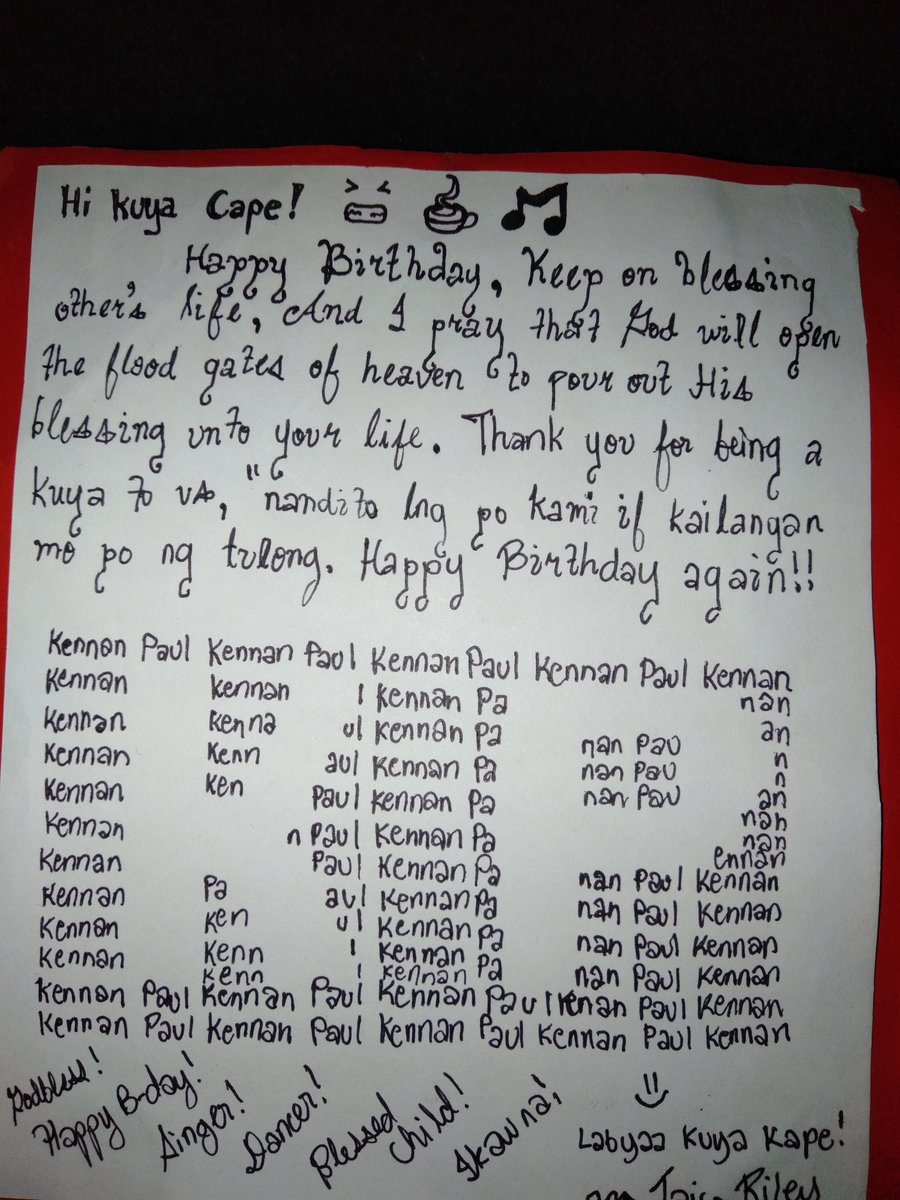 Hi Kuya Cape!
Happy Birthday, Keep on blessing
other's life, And I pray that God will open
the flood gates of heaven to pour out His
blessing unto your life. Thank you for being a
kuya to us, "nandito lng po kami if kailangan
mo po ng tulong. Happy Birthday again!!
Kennan Paul Kennan Paul Kennan Paul Kennan Paul Kennan
Kennan kennan l Kennan Pa nan
Kennan Kenna ul Kennan Pa an
Kennan Kenn aul Kennan Pa nan Pau n
Kennan Ken Paul Kennan Pa nan Pau n
Kennan n Paul Kennan Pa nan Pau an
Kennan Paul Kennan Pa nan
Kennan Pa aul Kennan Pa nan
Kennan Ken ul Kennan Pa ennan
Kennan Kenn l Kennan Pa nan Paul Kennan
Kenn l Kennan Pa nan Paul Kennan
nan Paul Kennan
nan Paul Kennan
Kennan Paul Kennan Paul Kennan Paul Kenan Paul Kennan
Kennan Paul Kennan Paul Kennan Paul Kennan Paul Kennan
Godbless!
Happy B-day!
Singer!
Dancer!
Blessed
child!
Ikaw na!
Labyaa Kuya Kape!
Riley